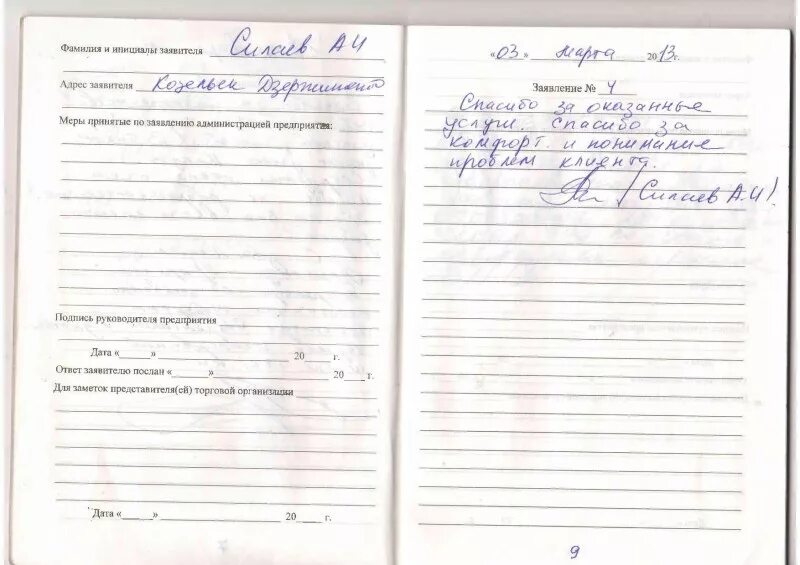 Фамилия и инициалы заявителя Силаев А И
Адрес заявителя Козельск Дзержинского
Меры принятые по заявлению администрацией предприятия:
Подпись руководителя предприятия
Дата «_____» 20____ г.
Ответ заявителю послан «_____» 20____ г.
Для заметок представителя(ей) торговой организации
Дата «_____» 20____ г.
«03» марта 2013г.
Заявление № 4
Спасибо за оказанные
услуги. Спасибо за
комфорт и понимание
проблем клиента.
/Силаев А.И/
9